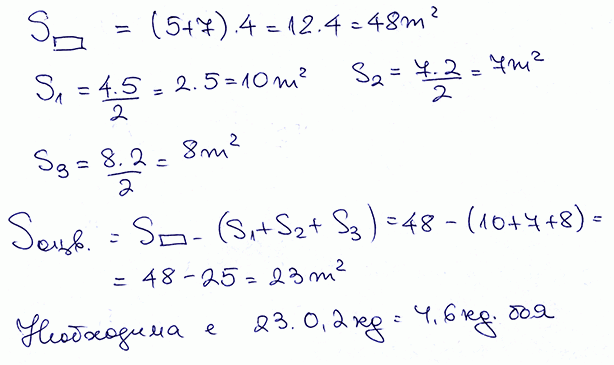 S▭ = (5+7).4 = 12.4 = 48m²
S₁ = 4.5/2 = 2.5 = 10m² S₂ = 7.2/2 = 7m²
S₃ = 8.2/2 = 8m²
Sоцв. = S▭ - (S₁+S₂+S₃) = 48 - (10+7+8) =
= 48 - 25 = 23m²
Необходима е 23.0,2кг = 4,6кг. боя